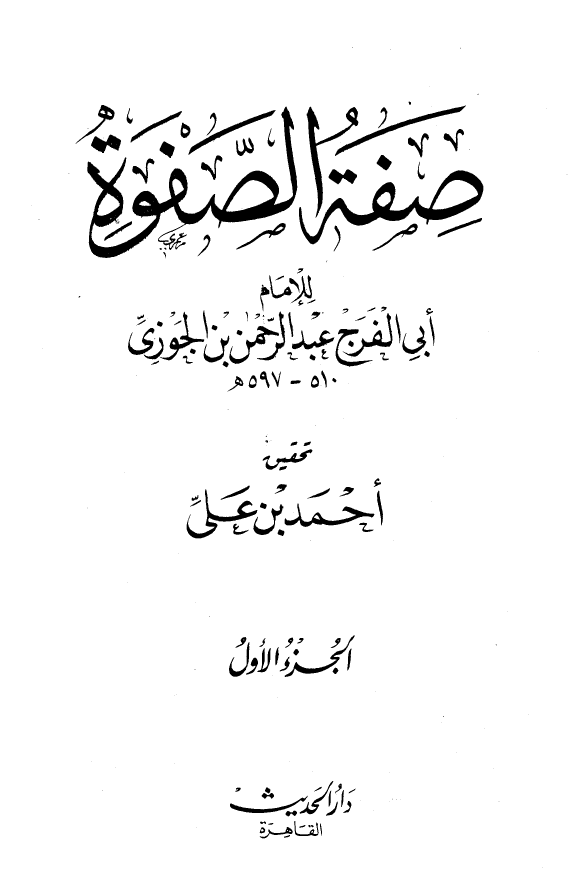 صِفَةُ الصَّفْوَةِ
لِلإِمَام
أَبِي الفَرَجِ عَبْد الرَّحْمٰن بْن الجَوْزِىِّ
٥١٠ - ٥٩٧ هـ
تحقيق
أَحْمَد بْن عَلِىّ
الجُزءُ الأَولُ
دَارُ الحَدِيث
القَاهِرَة